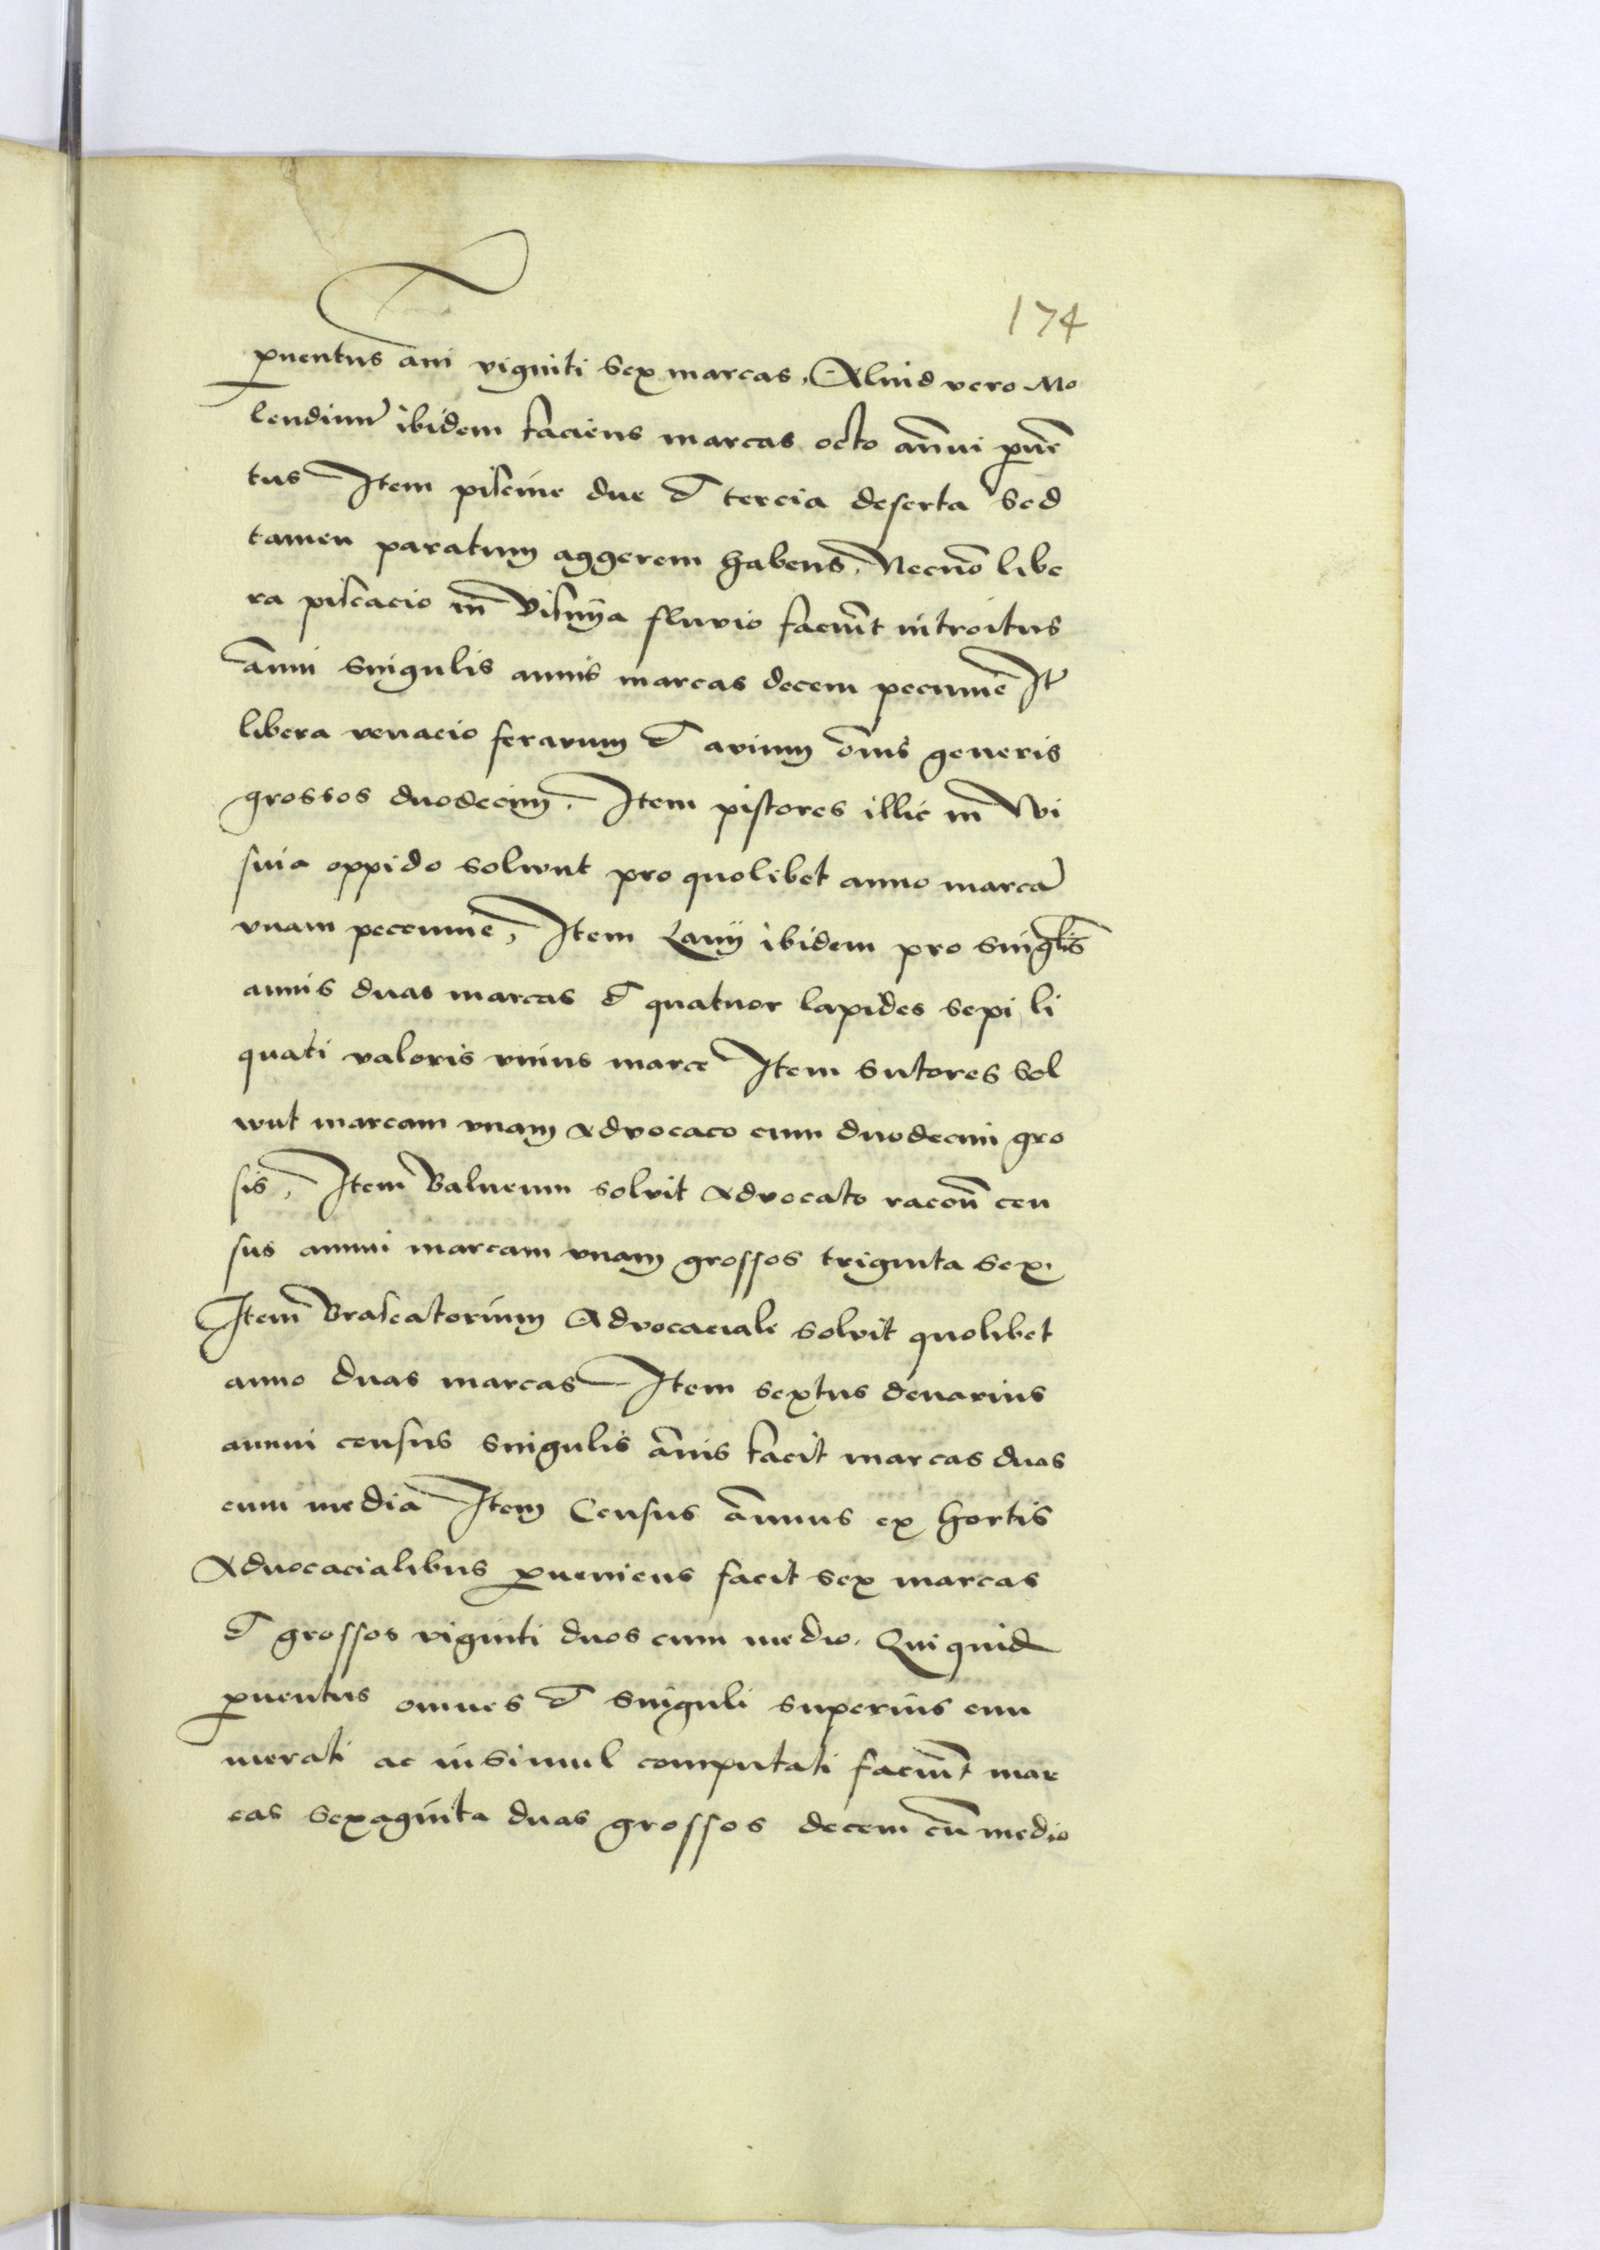 174
ꝓuentus ani viginti sex marcas, Aliud vero Mo
lendinu ibidem faciens marcas octo anui ꝓuē
tus Item piscine due et tercia deserta sed
tamen paratum aggerem habens, Necno libe
ra piscacio in Visnya fluvio faciut introitus
annui singulis annis marcas decem pecunie It
libera venacio ferarum et avium omis generis
grossos duodecim. Item pistores illic in Wi
snia oppido solvunt pro quolibet anno marca
vnam peccunie, Item Lanij ibidem pro singlis
annis duas marcas et quatuor lapides sepi li
quati valoris vnius marce Item sutores sol
wnt marcam vnam Advocaco cum duodecim gro
sis, Item Balneum solvit Advocato racon cen
sus annui marcam vnam grossos triginta sex.
Item Braseatorium Advocaciale solvit quolibet
anno duas marcas Item sextus denarius
annui census singulis annis facit marcas duas
cum media Item Census annuus ex hortis
Advocacialibus ꝑueniens facit sex marcas
et grossos viginti duos cum medio. Qui quid
ꝓuentus omnes et singuli superius enu
merati ac insimul computati faciunt mar
cas sexaginta duas grossos decem cu medio